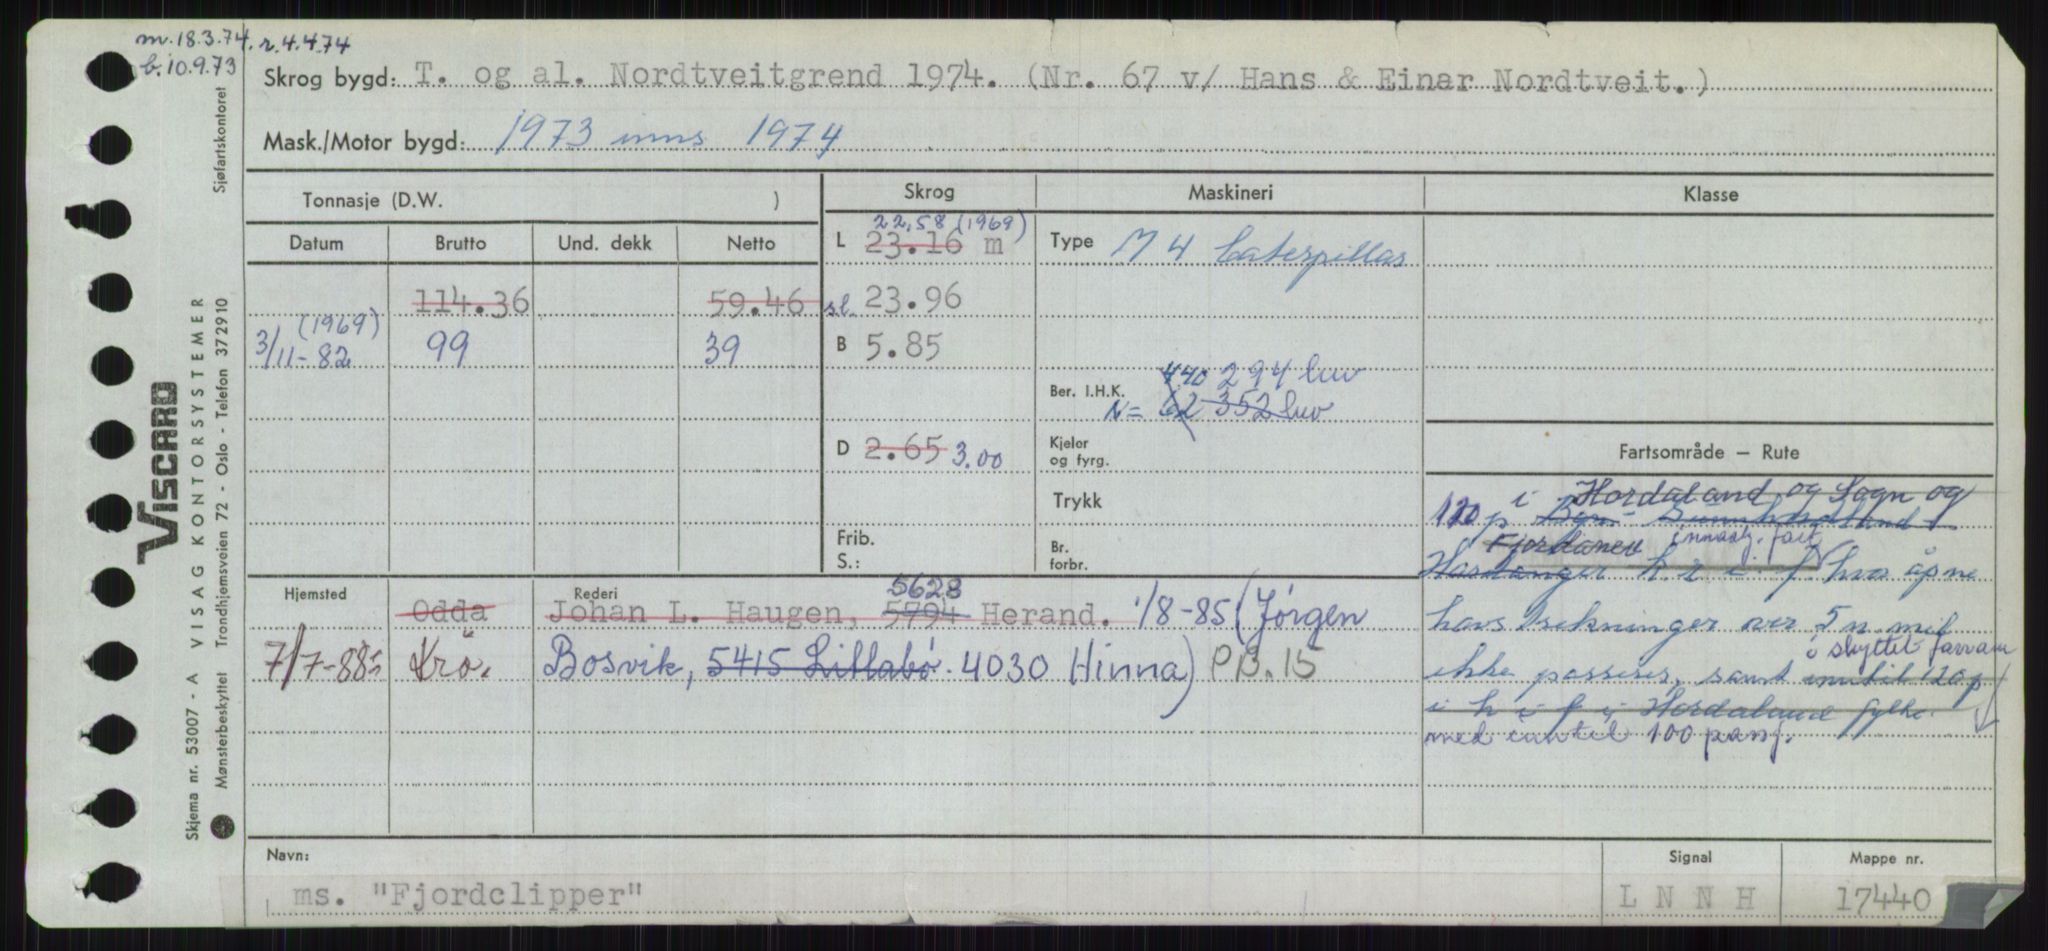 m. 18.3.74. r. 4.4.74
b. 10.9.73
Skrog bygd: T. og al. Nordtveitgrend 1974. (Nr. 67 v/ Hans & Einar Nordtveit.)
Mask./Motor bygd: 1973 inns 1974
Sjøfartskontoret
Tonnasje (D.W. )
Skrog
Maskineri
Klasse
Datum
Brutto
Und. dekk
Netto
L 23.16 m
22,58 (1969)
Type M 4 Caterpillar
114.36
59.46
sl. 23.96
(1969)
3/11-82
99
39
B 5.85
Ber. I.H.K.
440 294 kw
N = 62 352 kw
D 2.65 3.00
Kjeler
og fyrg.
Trykk
Frib.
S.:
Br.
forbr.
Fartsområde — Rute
i Hordaland og Sogn og
120 p Bgn- Sunnhordland
Fjordanev innasg. fart
Hardanger h r i f hvor åpne
havstrekninger over 5 n mil
i skyttet farvann
ikke passeres, samt inntil 120 p
i h i f i Hordaland fylke.
med inntil 100 pasj.
Hjemsted
Rederi
Odda
5628
Johan L. Haugen, 5794 Herand. 1/8-85 (Jørgen
7/7-88
Krø.
Bosvik, 5415 Lillabø. 4030 Hinna) PB. 15
Navn:
ms. "Fjordclipper"
Signal
L N N H
Mappe nr.
17440
VISCARD
Skjema nr. 53007 - A VISAG KONTORSYSTEMER
Mønsterbeskyttet Trondhjemsveien 72 - Oslo - Telefon 372910